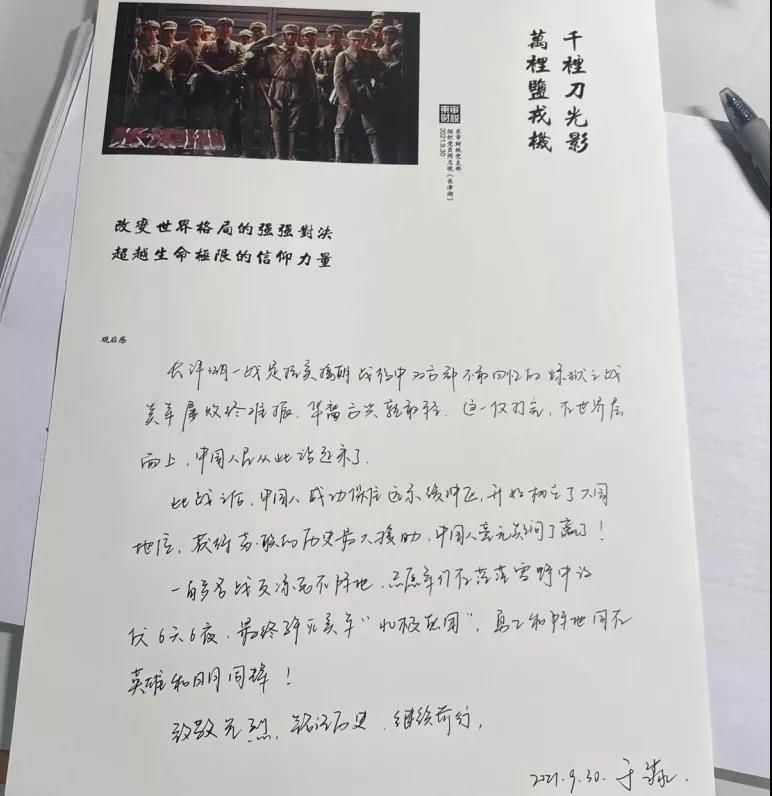 千種刀光影
萬裡鹽戎機
東審財稅
东审财税党支部
组织党员同志观《长津湖》
2021.9.30
长津湖
改变世界格局的强强對決
超越生命極限的信仰力量
观后感
长津湖一战是抗美援朝战役中双方都不希回忆的炼狱之战
美军屡败终难振，华裔方兴孰敢轻．这一仗打完，在世界层
面上，中国人民从此站起来了．
此战之后，中国人成功保住远东缓冲区，开始树立了大国
地位，获得苏联的历史最大援助，中国人毫无疑问了赢了！
一百多名战友冻死不阵地，志愿军们在茫茫雪野中设
伏6天6夜，最终歼灭美军“北极熊团”，勇士和阵地同在
英雄和日月同辉！
致敬先烈，铭记历史，继续前行．
2021.9.30. 于